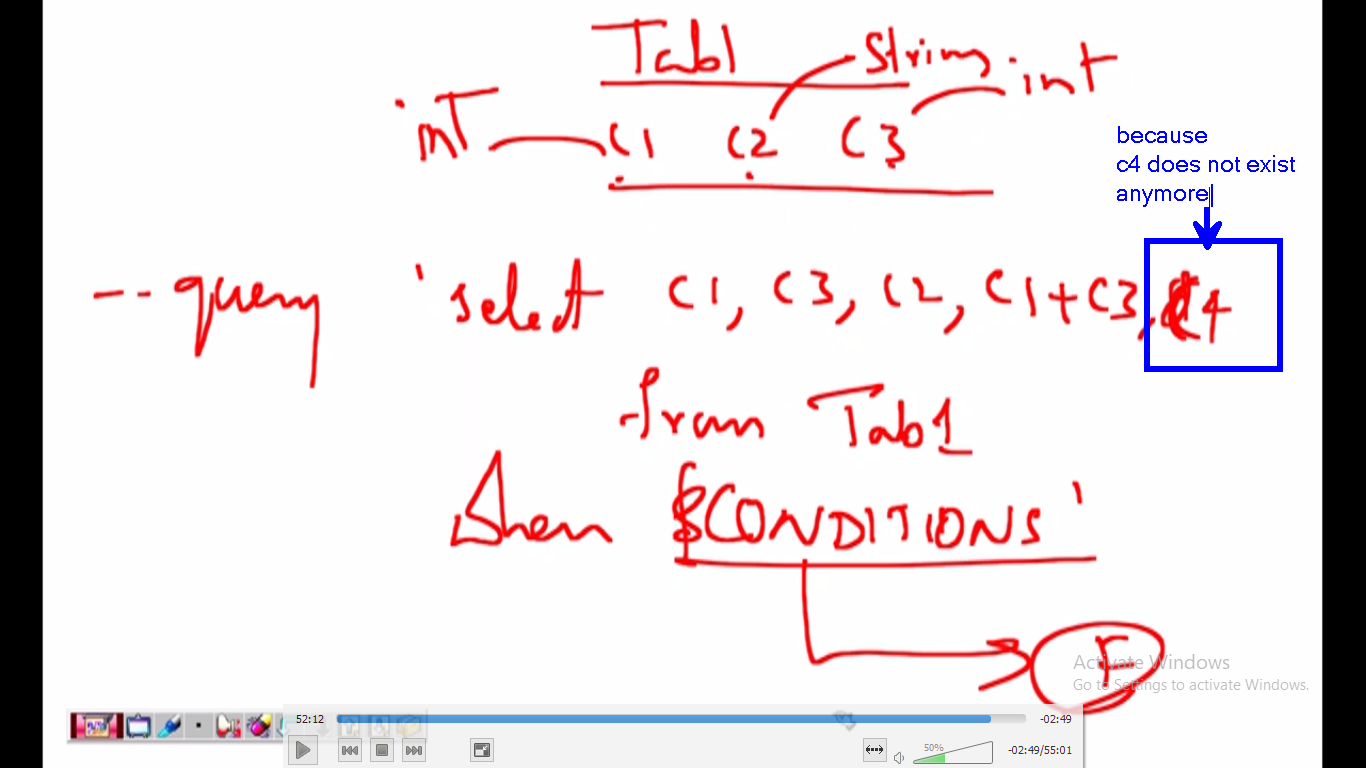 Tab1
String int
int C1 C2 C3
because
c4 does not exist
anymore
-- query 'select C1, C3, C2, C1+C3, C4
from Tab1
Where $CONDITIONS'
F
Activate Windows
Go to Settings to activate Windows.
52:12 -02:49
50% -02:49/55:01